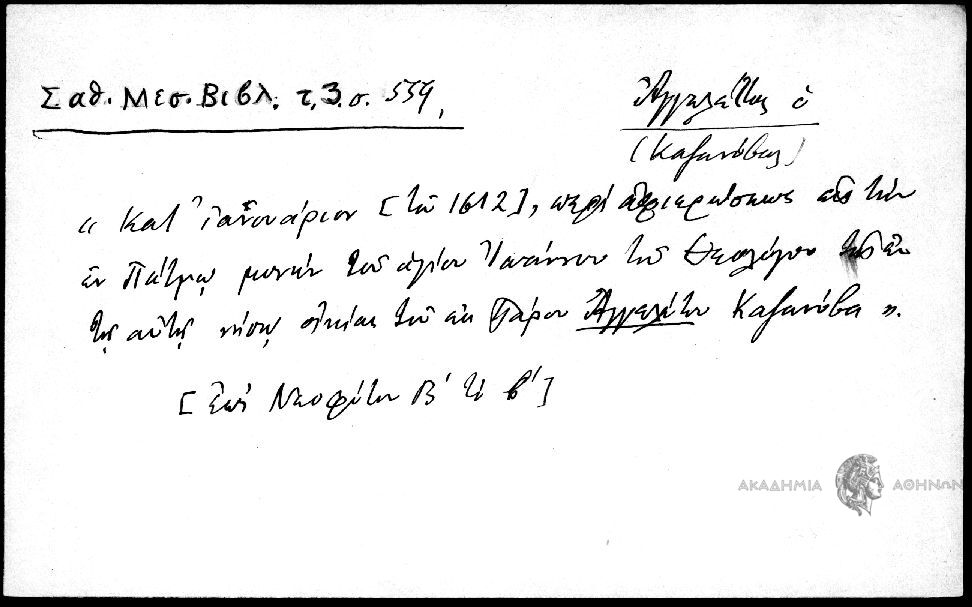 Σαθ. Μεσ. Βιβλ. τ. 3. σ. 559,
Ἀγγελέτος ὁ
(Καζανόβας)
« Κατ' Ἰανουάριον [τοῦ 1612], περὶ ἀφιερώσεως εἰς τὴν
ἐν Πάτμῳ μονὴν τοῦ ἁγίου Ἰωάννου τοῦ Θεολόγου τῆς ἐν
τῇ αὐτῇ νήσῳ οἰκίας τοῦ ἐκ Πάρου Ἀγγελέτου Καζανόβα ».
[ἐπὶ Νεοφύτου Β' τὸ β']
ΑΚΑΔΗΜΙΑ ΑΘΗΝΩΝ